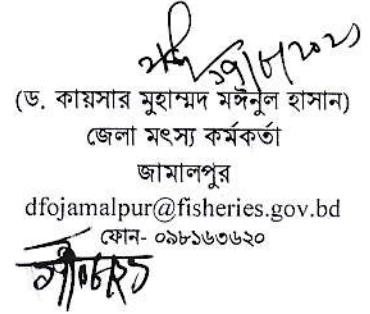 (ড. কায়সার মুহাম্মদ মঈনুল হাসান)
জেলা মৎস্য কর্মকর্তা
জামালপুর
dfojamalpur@fisheries.gov.bd
ফোন- ০৯৮১৬৩৬২০